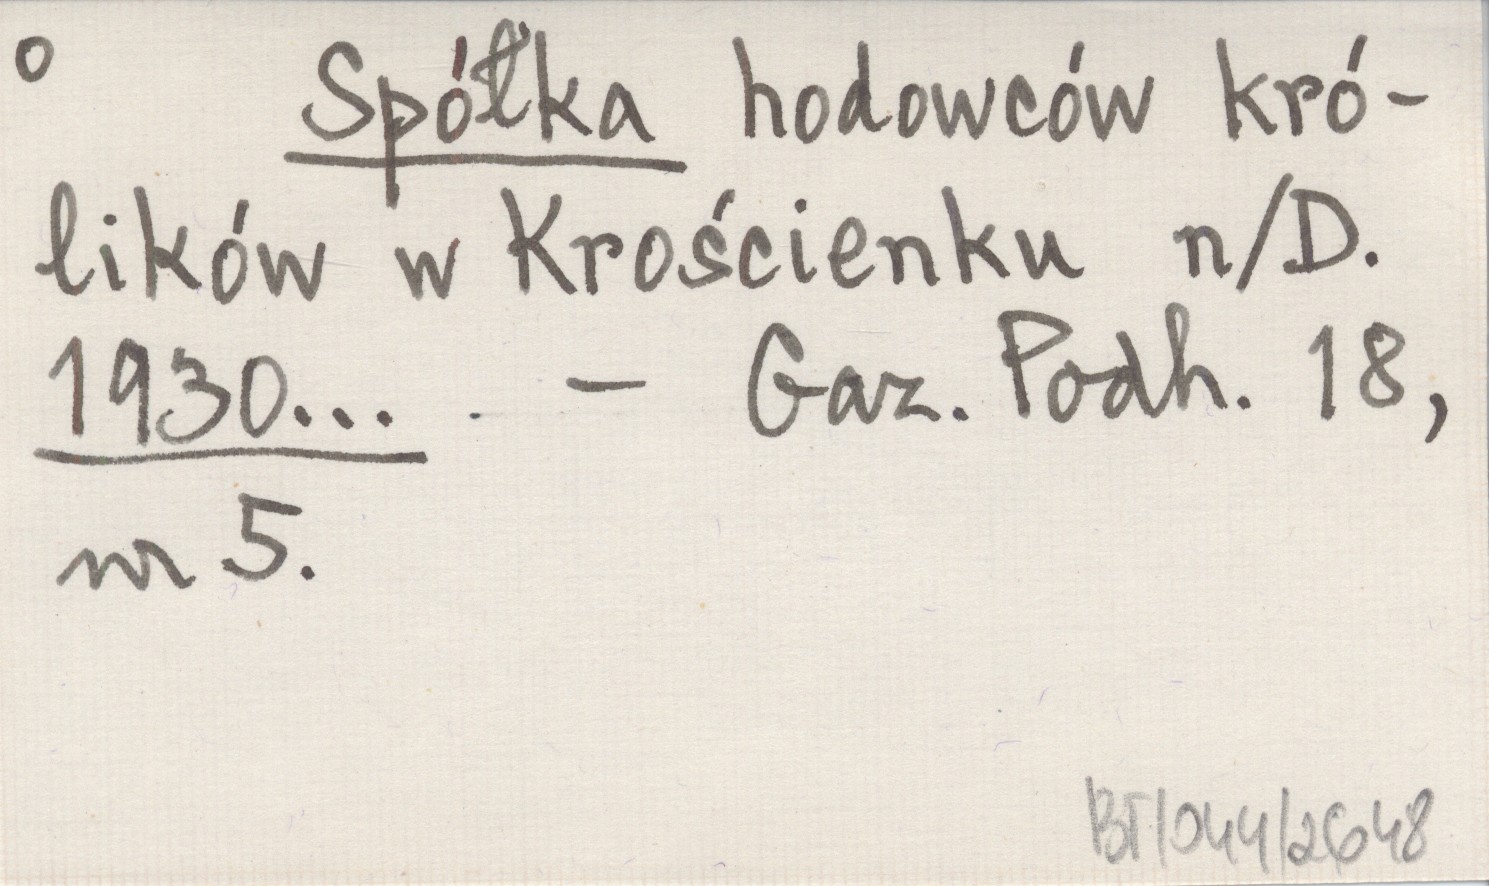 o Spółka hodowców kró-
lików w Krościenku n/D.
1930... - Gaz. Podh. 18,
nr 5.
BT/044/2648